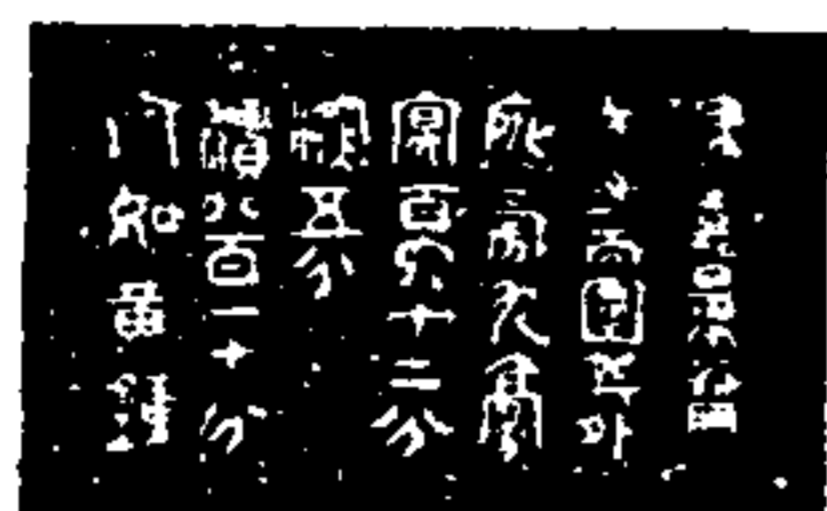 律嘉量籥
方寸而圜其外
庣旁九豪
冥百六十二分
深五分
積八百一十分
容如黃鐘